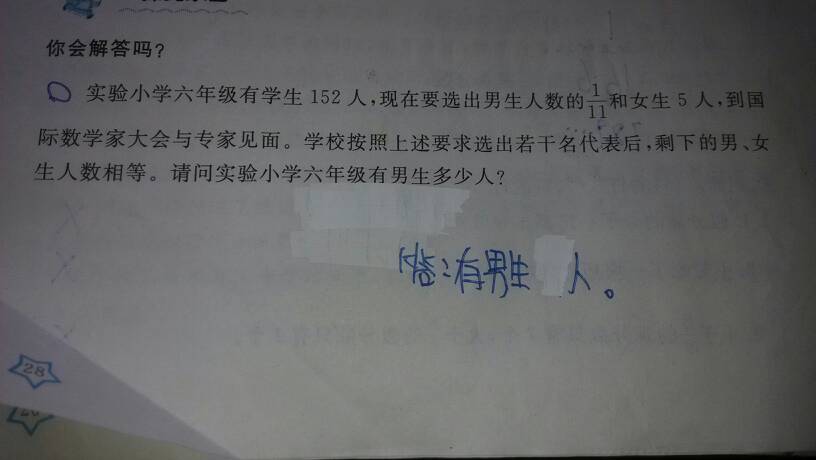 你会解答吗?
实验小学六年级有学生 152 人,现在要选出男生人数的1/11和女生 5 人,到国
际数学家大会与专家见面。学校按照上述要求选出若干名代表后,剩下的男、女
生人数相等。请问实验小学六年级有男生多少人?
答:有男生 人。
28